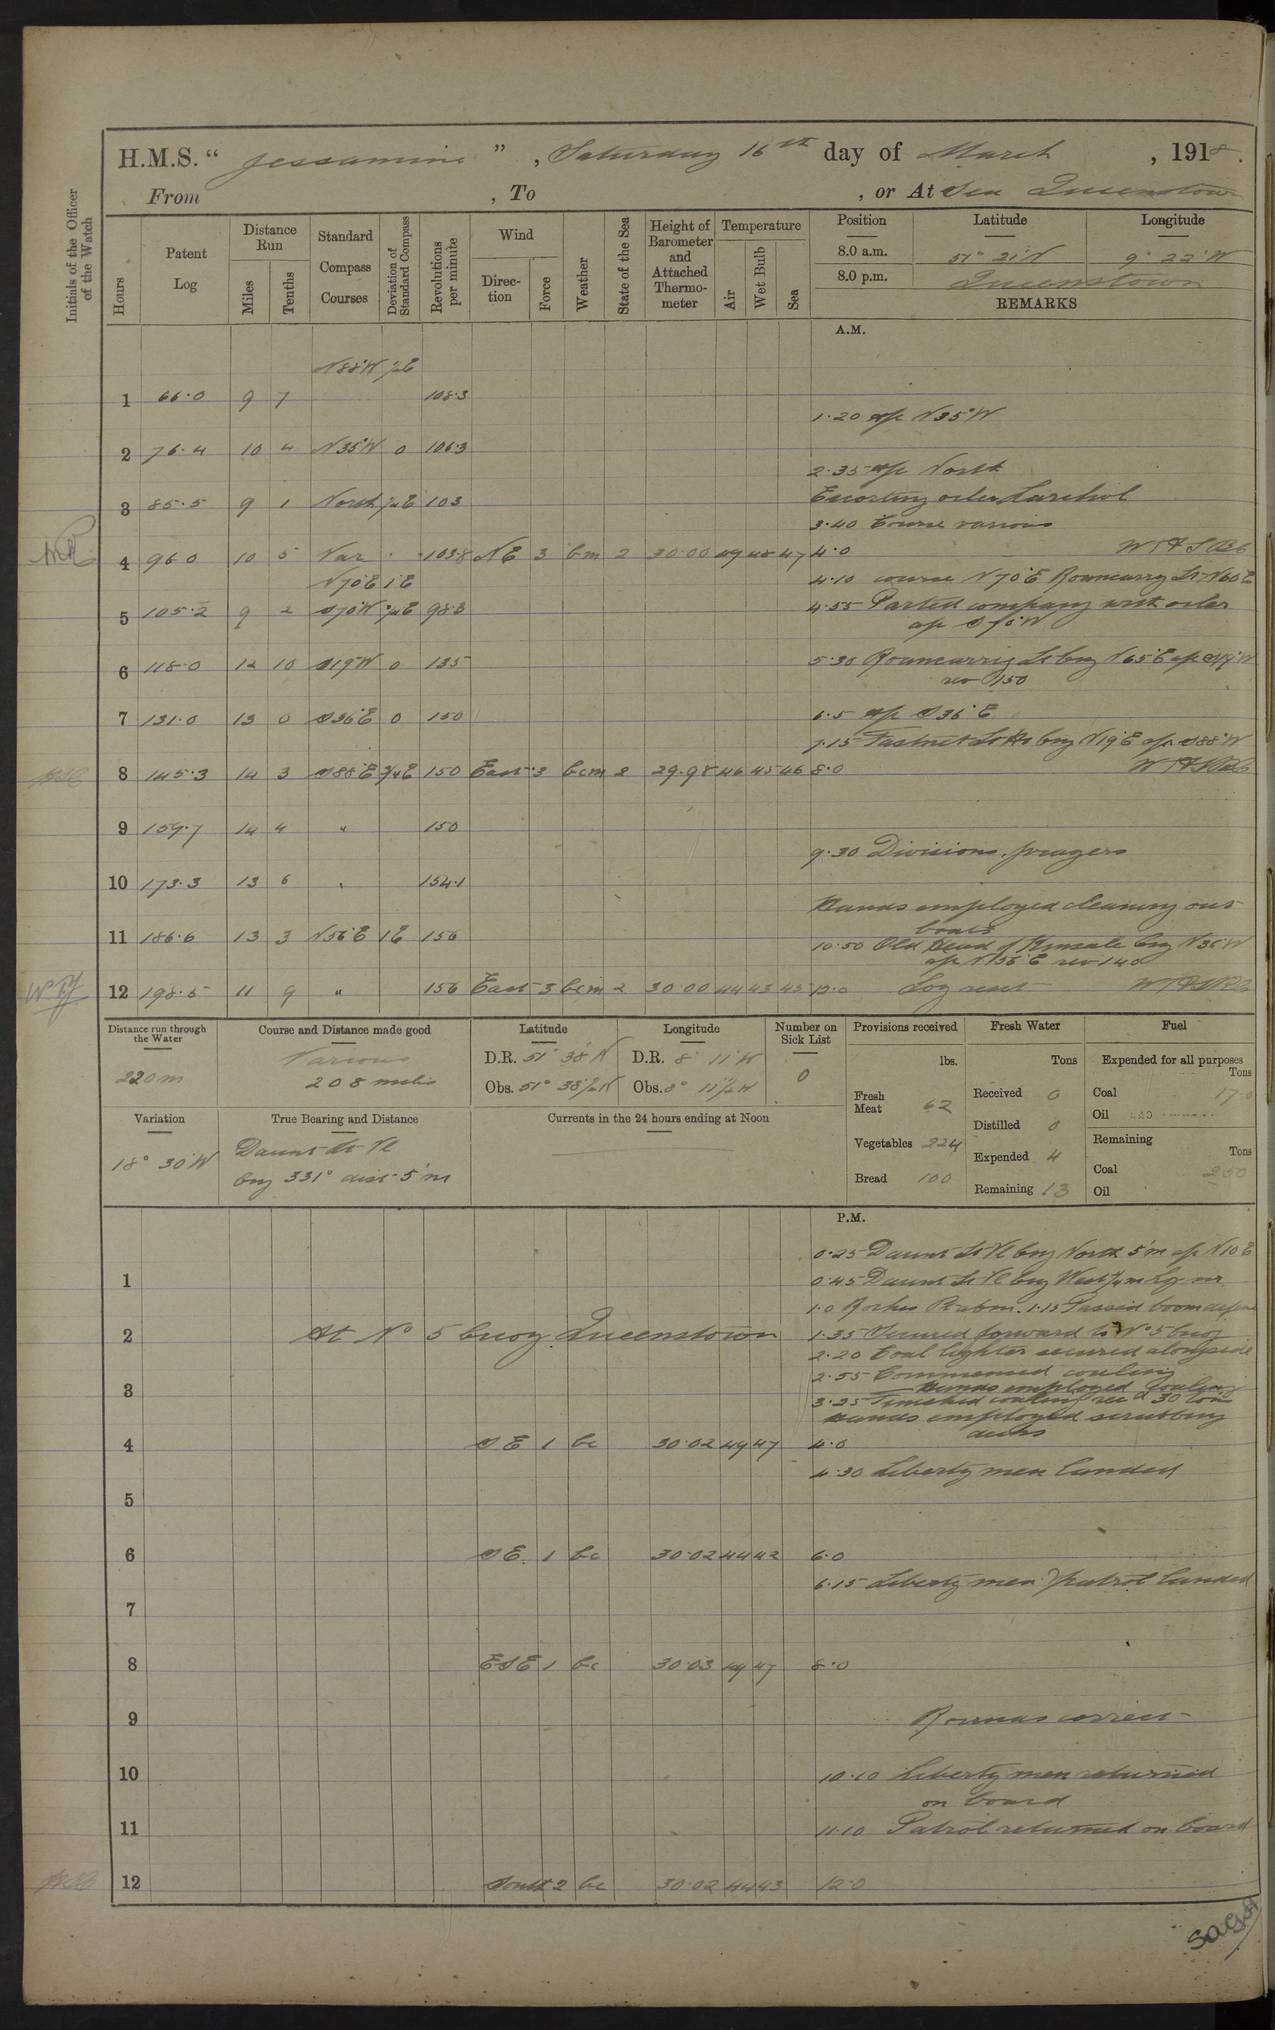 H.M.S. " Jessamine " , Saturday 16th day of March , 1918.
From , To , or At Sea Queenstown
Initials of the Officer of the Watch
Hours
Patent Log
Distance Run
Miles
Tenths
Standard Compass Courses
Deviation of Standard Compass
Revolutions per minute
Wind
Direction
Force
Weather
State of the Sea
Height of Barometer and Attached Thermometer
Temperature
Air
Wet Bulb
Sea
Position Latitude Longitude
8.0 a.m. 51° 21'N 9° 22'W
8.0 p.m. Queenstown
REMARKS
A.M.
N88°W ½E
1 66.0 9 7 108.3
1.20 a/c N35°W
2 76.4 10 4 N35°W 0 106.3
2.35 a/c North
3 85.5 9 1 North ½E 103
Escorting oiler
3.40 Course various
4 96.0 10 5 Var 103.8 NE 3 bm 2 30.00 49 48 47 4.0
N70°E 1°E
4.10 course N70°E Roancarrig Lt N60E
5 105.2 9 2 S70°W 98.3
4.55 Parted company with oiler
a/c S70°W
6 118.0 12 10 S19°W 0 135
5.30 Roancarrig Lt brg N65°E a/c S19°W
rev 150
7 131.0 13 0 S36°E 0 150
6.5 a/c S36°E
7.15 Fastnet Lt Ho brg N19°E a/c S88°W
8 145.3 14 3 S88°E ¾E 150 East 3 bcm 2 29.98 46 45 46 8.0
9 159.7 14 4 " 150
9.30 Divisions, prayers
10 173.3 13 6 " 154.1
Hands employed cleaning out
boats
11 186.6 13 3 N56°E 1E 156
10.50 Old Head of Kinsale brg N36°W
a/c N56°E rev 140
12 198.5 11 9 " 156 East 3 bcm 2 30.00 44 43 45 12.0 Log reset
Distance run through the Water
220m
Course and Distance made good
Various
208 miles
Latitude
D.R. 51° 38'N
Obs. 51° 38½'N
Longitude
D.R. 8° 11'W
Obs. 8° 11½'W
Number on Sick List
0
Provisions received
lbs.
Fresh Meat 62
Vegetables 224
Bread 100
Fresh Water
Tons
Received 0
Distilled 0
Expended 4
Remaining 13
Fuel
Expended for all purposes
Tons
Coal 17.0
Oil
Remaining
Tons
Coal 250
Oil
Variation
18° 30'W
True Bearing and Distance
Daunt Lt Vl
brg 331° dist 5'm
Currents in the 24 hours ending at Noon
P.M.
0.25 Daunt Lt Vl brg North 5'm a/c N10E
1
0.45 Daunt Lt Vl brg West ¼m
1.0 Roches Pt abm. 1.15 Passed boom defence
2 At No 5 buoy Queenstown
1.35 Secured forward to No 5 buoy
2.20 Coal lighter secured alongside
2.55 Commenced coaling
Hands employed coaling
3
3.35 Finished coaling recd 30 tons
Hands employed scrubbing
decks
4 SE 1 bc 30.02 49 47 4.0
4.30 Liberty men landed
5
6 SE 1 bc 30.02 44 42 6.0
6.15 Liberty men & patrol landed
7
8 ESE 1 bc 30.03 49 47 8.0
9 Rounds correct
10 10.10 Liberty men returned
on board
11 11.10 Patrol returned on board
12 South 2 bc 30.02 44 43 12.0